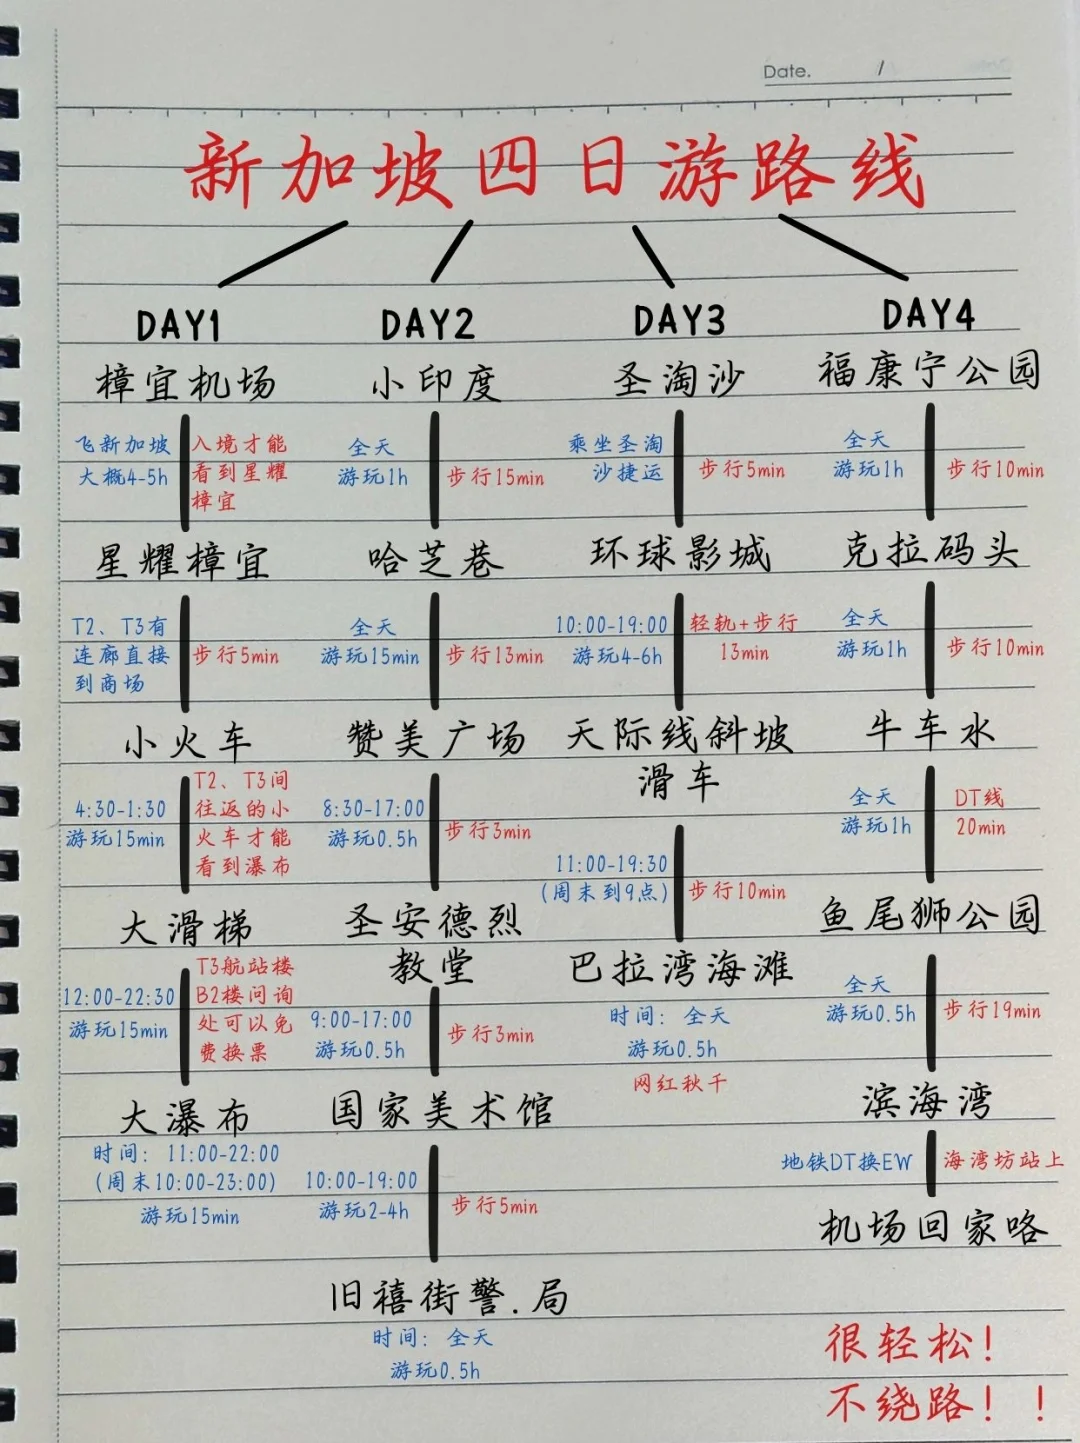 Date. /
新加坡四日游路线
DAY1
樟宜机场
飞新加坡
大概4-5h
入境才能
看到星耀
樟宜
星耀樟宜
T2、T3有
连廊直接
到商场
步行5min
小火车
4:30-1:30
游玩15min
T2、T3间
往返的小
火车才能
看到瀑布
大滑梯
12:00-22:30
游玩15min
T3航站楼
B2楼问询
处可以免
费换票
大瀑布
时间：11:00-22:00
(周末10:00-23:00)
游玩15min
DAY2
小印度
全天
游玩1h
步行15min
哈芝巷
全天
游玩15min
步行13min
赞美广场
8:30-17:00
游玩0.5h
步行3min
圣安德烈
教堂
9:00-17:00
游玩0.5h
步行3min
国家美术馆
10:00-19:00
游玩2-4h
步行5min
旧禧街警.局
时间：全天
游玩0.5h
DAY3
圣淘沙
乘坐圣淘
沙捷运
步行5min
环球影城
10:00-19:00
游玩4-6h
轻轨+步行
13min
天际线斜坡
滑车
11:00-19:30
(周末到9点)
步行10min
巴拉湾海滩
时间：全天
游玩0.5h
网红秋千
DAY4
福康宁公园
全天
游玩1h
步行10min
克拉码头
全天
游玩1h
步行10min
牛车水
全天
游玩1h
DT线
20min
鱼尾狮公园
全天
游玩0.5h
步行19min
滨海湾
地铁DT换EW
海湾坊站上
机场回家咯
很轻松！
不绕路！！